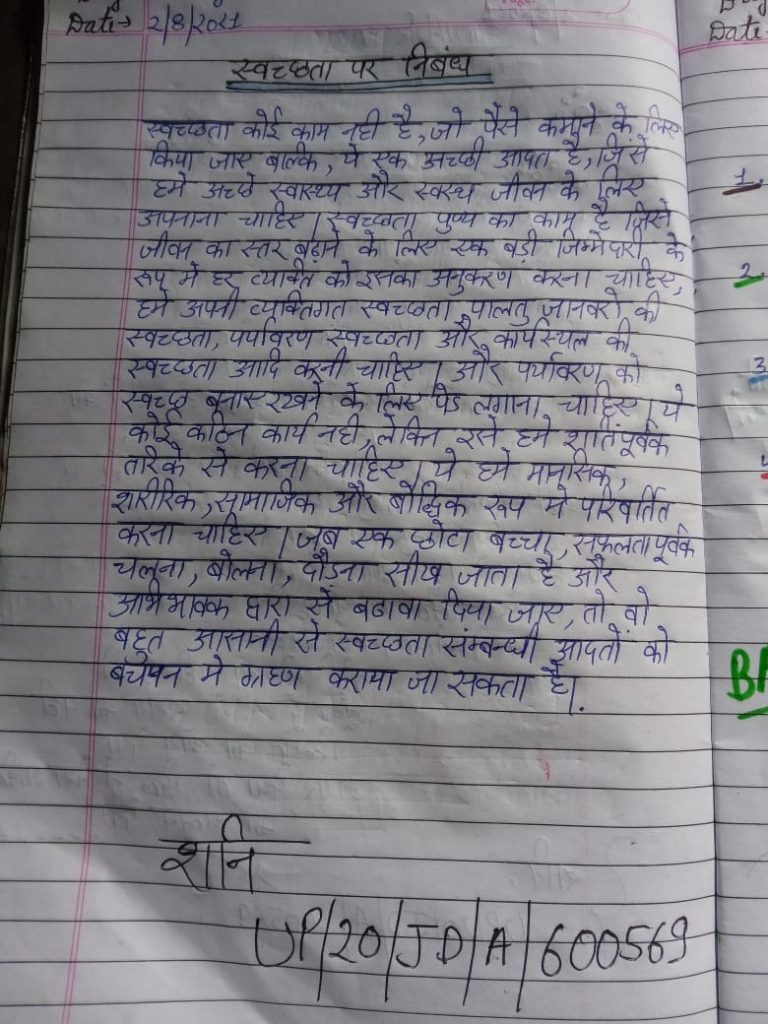 Date → 2/8/2021
स्वच्छता पर निबंध
स्वच्छता कोई काम नही है, जो पैसे कमाने के लिए
किया जाए बल्कि, ये एक अच्छी आदत है, जिसे
हमे अच्छे स्वास्थ्य और स्वस्थ जीवन के लिए
अपनाना चाहिए। स्वच्छता पुण्य का काम है जिसे
जीवन का स्तर बढ़ाने के लिए एक बड़ी जिम्मेदारी के
रूप में हर व्यक्ति को इसका अनुकरण करना चाहिए,
हमे अपनी व्यक्तिगत स्वच्छता, पालतु जानवरो की
स्वच्छता, पर्यावरण स्वच्छता और कार्यस्थल की
स्वच्छता आदि करनी चाहिए। और पर्यावरण को
स्वच्छ बनाए रखने के लिए पेड लगाना चाहिए। ये
कोई कठिन कार्य नही, लेकिन इसे हमे शांतिपूर्वक
तरिके से करना चाहिए। ये हमे मानसिक,
शारीरिक, सामाजिक और बौद्धिक रूप मे परिवर्तित
करना चाहिए। जब एक छोटा बच्चा, सफलतापूर्वक
चलना, बोलना, दौडना सीख जाता है और
अभिभावक द्वारा से बढावा दिया जाए, तो वो
बहुत आसानी से स्वच्छता संम्बन्धी आदतों को
बचपन मे ग्रहण कराया जा सकता है।
शनि
UP/20/JD/A/600569
Date
1.
2.
3